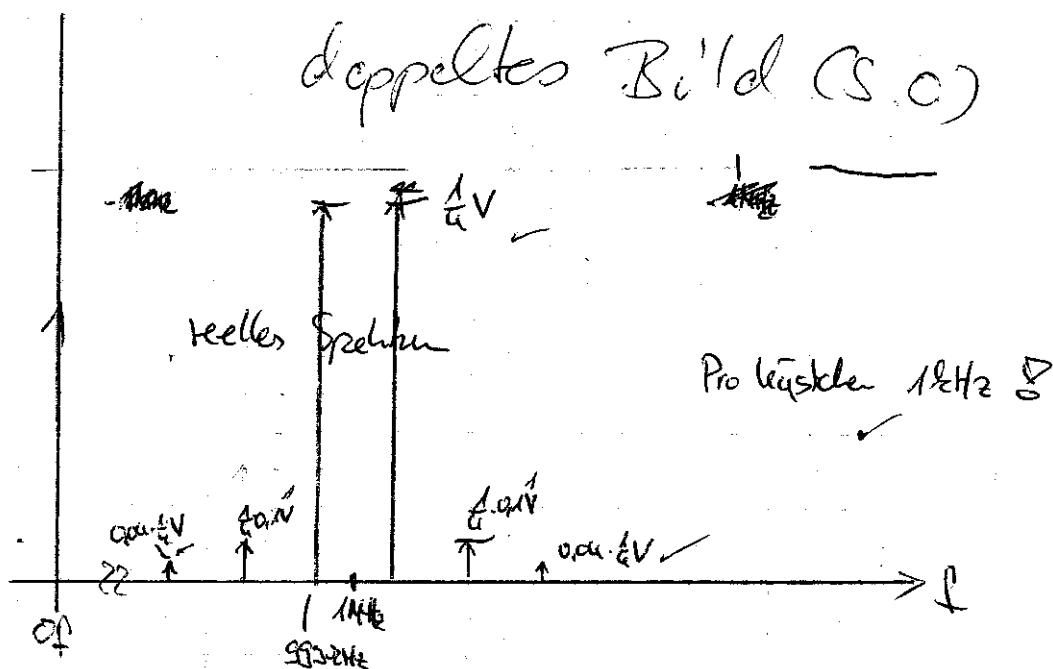 doppeltes Bild (S.O)
1/4 V
reelles Spektrum
Pro Kästchen 1kHz !
0,04·1/4V
1/4·0,1V
1/4·0,1V
0,04·1/4V
0f
1MHz
f